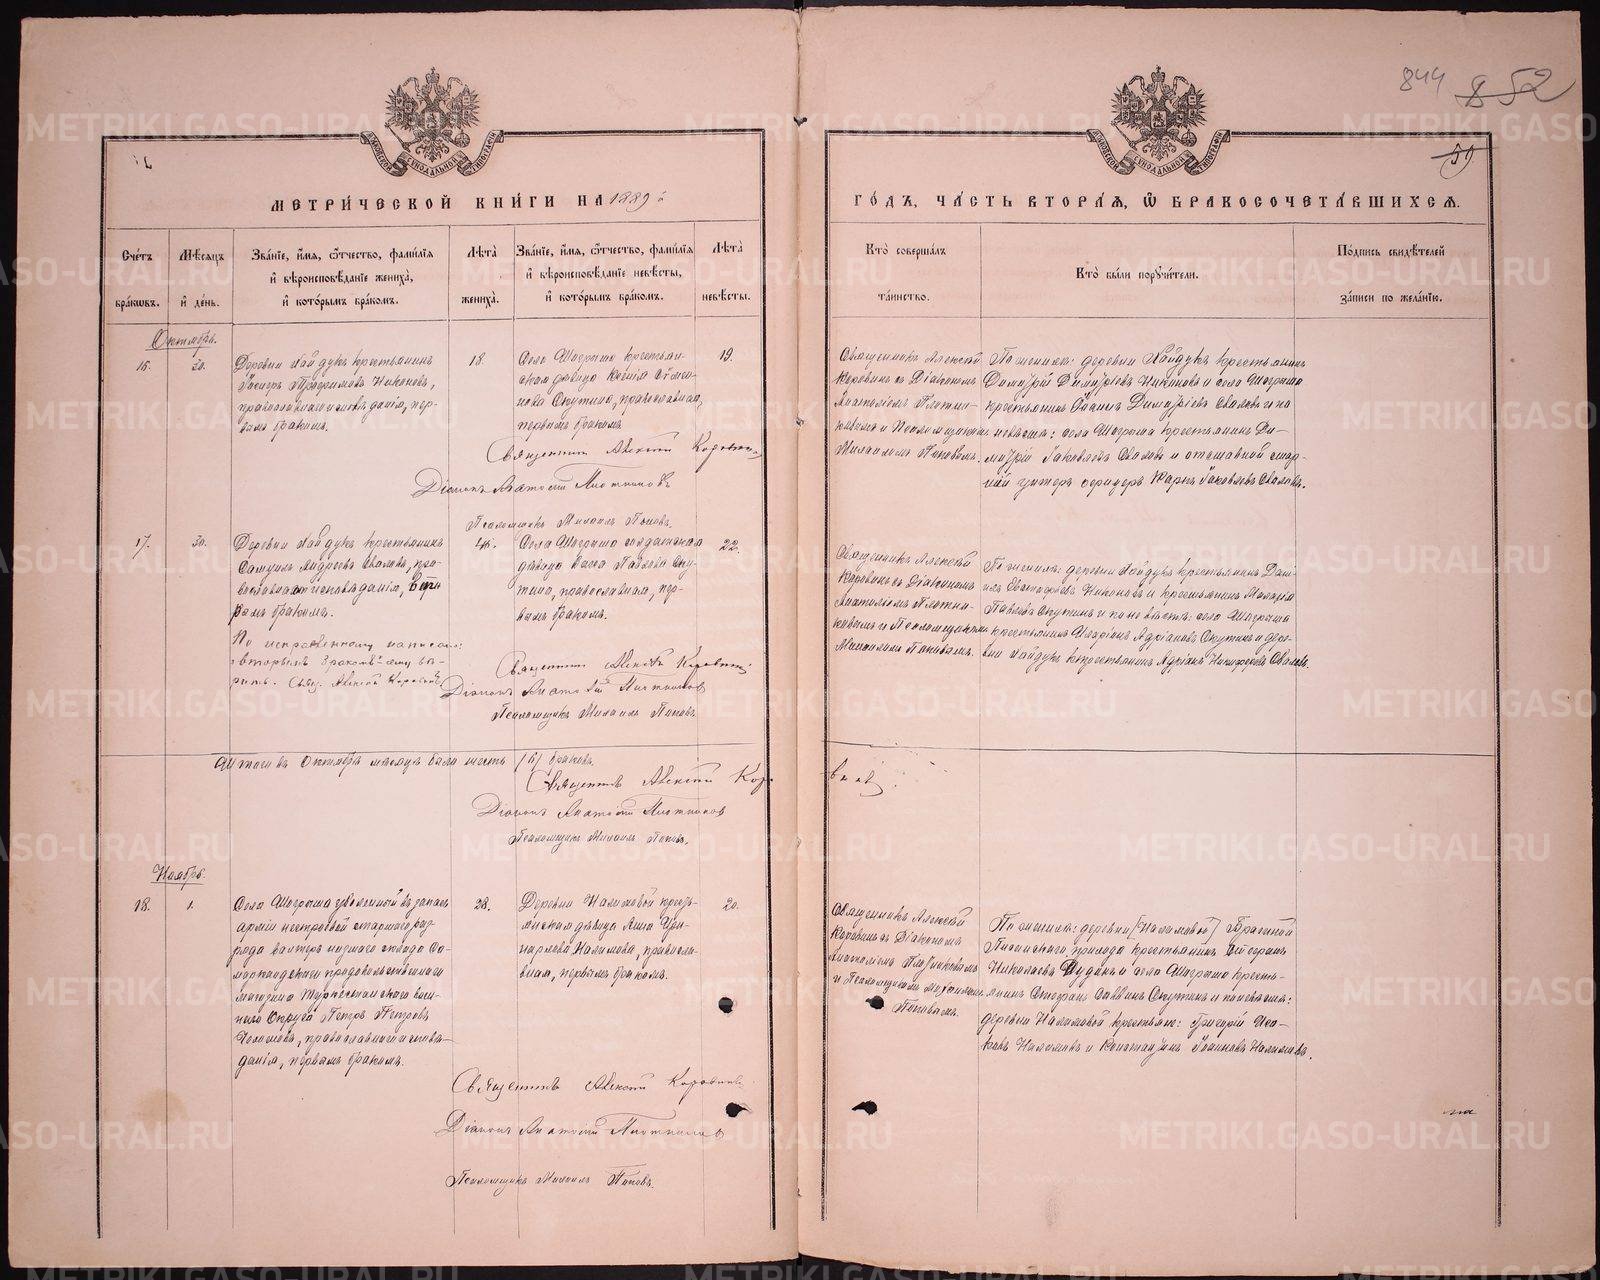 844 852
59
МЕТРИ́ЧЕСКОЙ КНИ́ГИ НА 1889 й
ГО́ДЪ, ЧА́СТЬ ВТОРА́Я, Ѡ БРАКОСОЧЕТА́ВШИХСЯ.
Сче́тъ бра́кѡвъ.
Мѣ́сяцъ и҆ де́нь.
Зва́нїе, и҆́мя, ѻ҆́тчество, фами́лїя
и҆ вѣроисповѣ́данїе жениха̀,
и҆ кото́рымъ бра́комъ.
Лѣта̀ жениха̀.
Зва́нїе, и҆́мя, ѻ҆́тчество, фами́лїя
и҆ вѣроисповѣ́данїе невѣ́сты,
и҆ кото́рымъ бра́комъ.
Лѣта̀ невѣ́сты.
Кто̀ соверша́лъ
та́инство.
Кто̀ бы́ли порꙋчи́тели.
По́дпись свидѣ́телей
за́писи по жела́нїю.
Октябрь.
16.
30.
Деревни Хайдукъ крестьянинъ
Трофимовъ Никоновъ,
православнаго исповѣданія, пер-
вымъ бракомъ.
18.
Села Шогриша крестьян-
ская дѣвица Ксенія
Скутина, православная,
первымъ бракомъ
19.
Священникъ Алексѣй Коровинъ
Діаконъ Анатолій Плотниковъ
Псаломщикъ Михаилъ Поповъ.
Священникъ Алексѣй
Коровинъ съ Діакономъ
Анатоліемъ Плотни-
ковымъ и Псаломщикомъ
Михаиломъ Поповымъ.
По женихѣ: деревни Хайдукъ крестьянинъ
Димитрій Димитріевъ Никоновъ и села Шогриша
крестьянинъ Димитріевъ и по
невѣстѣ: села Шогриша крестьянинъ Ди-
митрій Іаковлевъ и отставной стар-
шій унтеръ офицеръ Карпъ Іаковлевъ
17.
30.
Деревни Хайдукъ крестьянинъ
Самуилъ Андреевъ пра-
вославнаго исповѣданія, вто-
рымъ бракомъ.
По исправленному написан:
вторымъ бракомъ ему вѣ-
рить. Свящ. Алексѣй Коровинъ
46.
Села Шогриша солдатская
дѣвица Васса Павлова Ску-
тина, православная, пер-
вымъ бракомъ.
22.
Священникъ Алексѣй Коровинъ
Діаконъ Анатолій Плотниковъ
Псаломщикъ Михаилъ Поповъ.
Священникъ Алексѣй
Коровинъ съ Діакономъ
Анатоліемъ Плотни-
ковымъ и Псаломщикомъ
Михаиломъ Поповымъ.
По женихѣ: деревни Хайдукъ крестьянинъ
Никоновъ и крестьянинъ
Павловъ Скутинъ и по невѣстѣ: села Шогриша
крестьянинъ Иларіонъ Адріановъ Скутинъ и дере-
вни Хайдукъ крестьянинъ Адріанъ Никифоровъ
Итого въ Октябрѣ мѣсяцѣ было шесть /6/ браковъ.
Священникъ Алексѣй Коро-
виновъ.
Діаконъ Анатолій Плотниковъ
Псаломщикъ Михаилъ Поповъ.
Ноябрь.
18.
1.
Села Шогриша уволенный въ запасъ
арміи нестроевой старшаго раз-
ряда вахтеръ Са-
маркандскаго продовольственнаго
магазина Туркестанскаго воен-
наго Округа Петръ Петровъ
православнаго исповѣ-
данія, первымъ бракомъ.
28.
Деревни Налимовой кресть-
янская дѣвица Анна
Налимова, правосла-
вная, первымъ бракомъ.
20.
Священникъ Алексѣй Коровинъ
Діаконъ Анатолій Плотниковъ
Псаломщикъ Михаилъ Поповъ.
Священникъ Алексѣй
Коровинъ съ Діакономъ
Анатоліемъ Плотниковымъ
и Псаломщикомъ Михаиломъ
Поповымъ.
По женихѣ: деревни /Налимовой/
прихода крестьянинъ Стефанъ
Николаевъ и села Шогриша кресть-
янинъ Стефанъ Саввинъ Скутинъ и по невѣстѣ:
деревни Налимовой крестьяне: Григорій Иса-
ковъ Налимовъ и Константинъ Налимовъ.